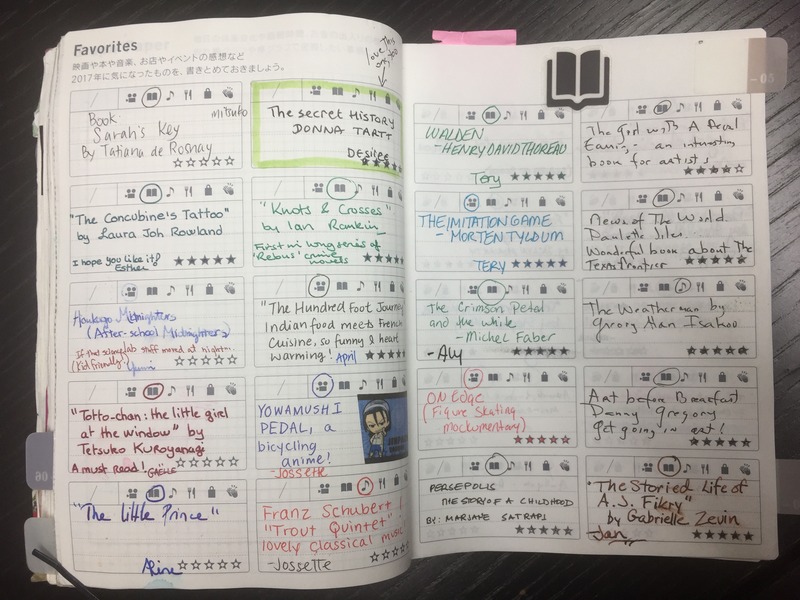 Favorites
映画や本や音楽、お店やイベントの感想など
2017年に気になったものを、書きとめておきましょう。
Book
mitsuko
Sarah's Key
By Tatiana de Rosnay
☆☆☆☆☆
love This
one too
The secret History
DONNA TARTT
Desiree
★★★★★
"The Concubine's Tattoo"
by Laura Joh Rowland
I hope you like it!
Esther
★★★★★
"Knots & Crosses"
by Ian Rankin
First in long series of
'Rebus' crime
novels
★★★★
Houkago Midnighters
(After-school Midnighters)
If that science lab stuff moved at night...
(Kid friendly)
☆☆☆☆☆
"The Hundred Foot Journey
Indian food meets French
Cuisine, so funny & heart
warming! April
★★★★
"Totto-chan: the little girl
at the window" by
Tetsuko Kuroyanagi
A must read! GAËLLE
☆☆☆☆☆
YOWAMUSHI
PEDAL, a
bicycling
anime!
-Jossette
"The Little Prince"
☆☆☆☆☆
Franz Schubert!
"Trout Quintet"!
lovely classical music
-Jossette
☆☆☆☆
05
WALDEN
- HENRY DAVID THOREAU
Tery ★★★★★
The Girl with A Pearl
Earring - an interesting
book for artists
★★★★☆
THE IMITATION GAME
- MORTEN TYLDUM
TERY ★★★★★
News of The World
Paulette Jiles
Wonderful book about The
Texas frontier
★★★★★
The Crimson Petal
and the white
- Michel Faber
- Aly
★★★★★
The Weatherman by
★★★★★
ON EDGE
(Figure Skating
mockumentary)
★★★★★
Art before Breakfast
Danny Gregory
get going in art!
★★★★★
PERSEPOLIS
THE STORY OF A CHILDHOOD
BY: MARJANE SATRAPI
★★★★★
"The Storied Life of
A.J. Fikry"
by Gabrielle Zevin
Jan
★★★★★
06